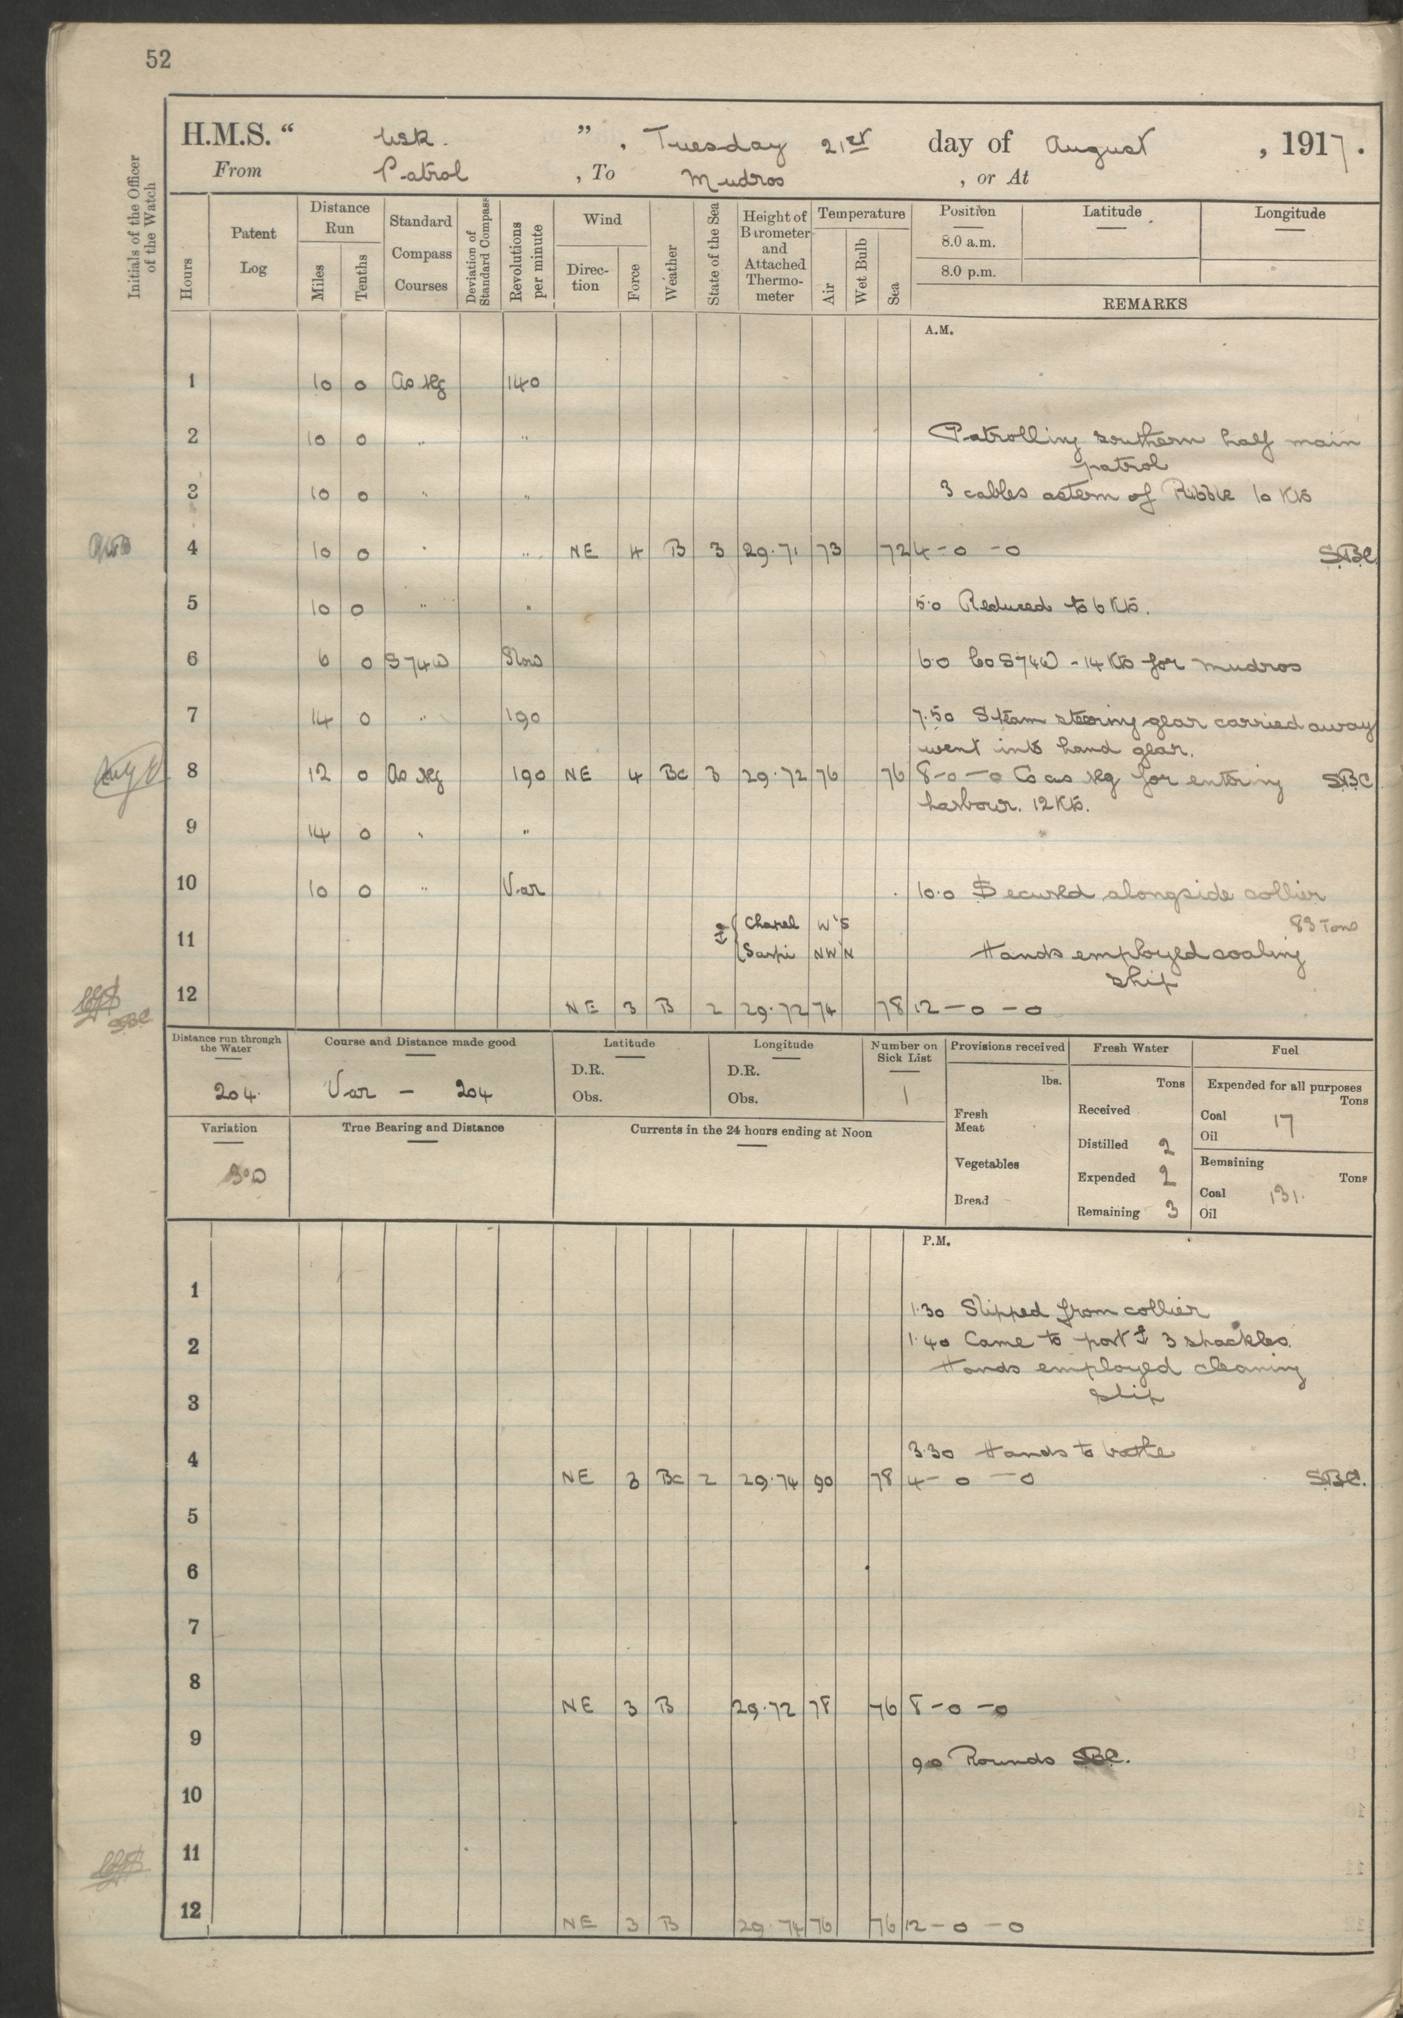 52
H.M.S. " Usk. ", Tuesday 21st day of August, 1917.
From Patrol, To Mudros, or At
Initials of the Officer of the Watch
Hours
Patent Log
Distance Run
Miles
Tenths
Standard Compass Courses
Deviation of Standard Compass
Revolutions per minute
Wind
Direction
Force
Weather
State of the Sea
Height of Barometer and Attached Thermometer
Temperature
Air
Wet Bulb
Sea
Position
8.0 a.m.
8.0 p.m.
Latitude
Longitude
REMARKS
A.M.
1 10 0 As req 140
2 10 0 " " Patrolling southern half main
patrol
3 10 0 " " 3 cables astern of Ribble 10 Kts
4 10 0 " " NE 4 B 3 29.71 73 72 4-0-0 SBC
5 10 0 " " 5.0 Reduced to 6 Kts.
6 6 0 S74W Slow 6.0 Co S74W - 14 Kts for Mudros
7 14 0 " 190 7.50 Steam steering gear carried away
went into hand gear.
8 12 0 As req 190 NE 4 Bc 3 29.72 76 76 8-0-0 Co as req for entering SBC
harbour. 12 Kts.
9 14 0 " "
10 10 0 " Var 10.0 Secured alongside collier
83 Tons
Chapel W'S
11 Sarpi NW'N Hands employed coaling
ship
12 NE 3 B 2 29.72 74 78 12-0-0
SBC
Distance run through the Water
204
Course and Distance made good
Var - 204
Latitude
D.R.
Obs.
Longitude
D.R.
Obs.
Number on Sick List
1
Provisions received
lbs.
Fresh Meat
Vegetables
Bread
Fresh Water
Tons
Received
Distilled 2
Expended 2
Remaining 3
Fuel
Expended for all purposes
Tons
Coal 17
Oil
Remaining
Tons
Coal 131.
Oil
Variation
True Bearing and Distance
Currents in the 24 hours ending at Noon
P.M.
1 1.30 Slipped from collier
2 1.40 Came to port ⚓ 3 shackles.
Hands employed cleaning
3 ship
3.30 Hands to bathe
4 NE 3 Bc 2 29.74 90 78 4-0-0 SBC.
5
6
7
8 NE 3 B 29.72 78 76 8-0-0
9 9.0 Rounds SBC.
10
11
12 NE 3 B 29.74 76 76 12-0-0